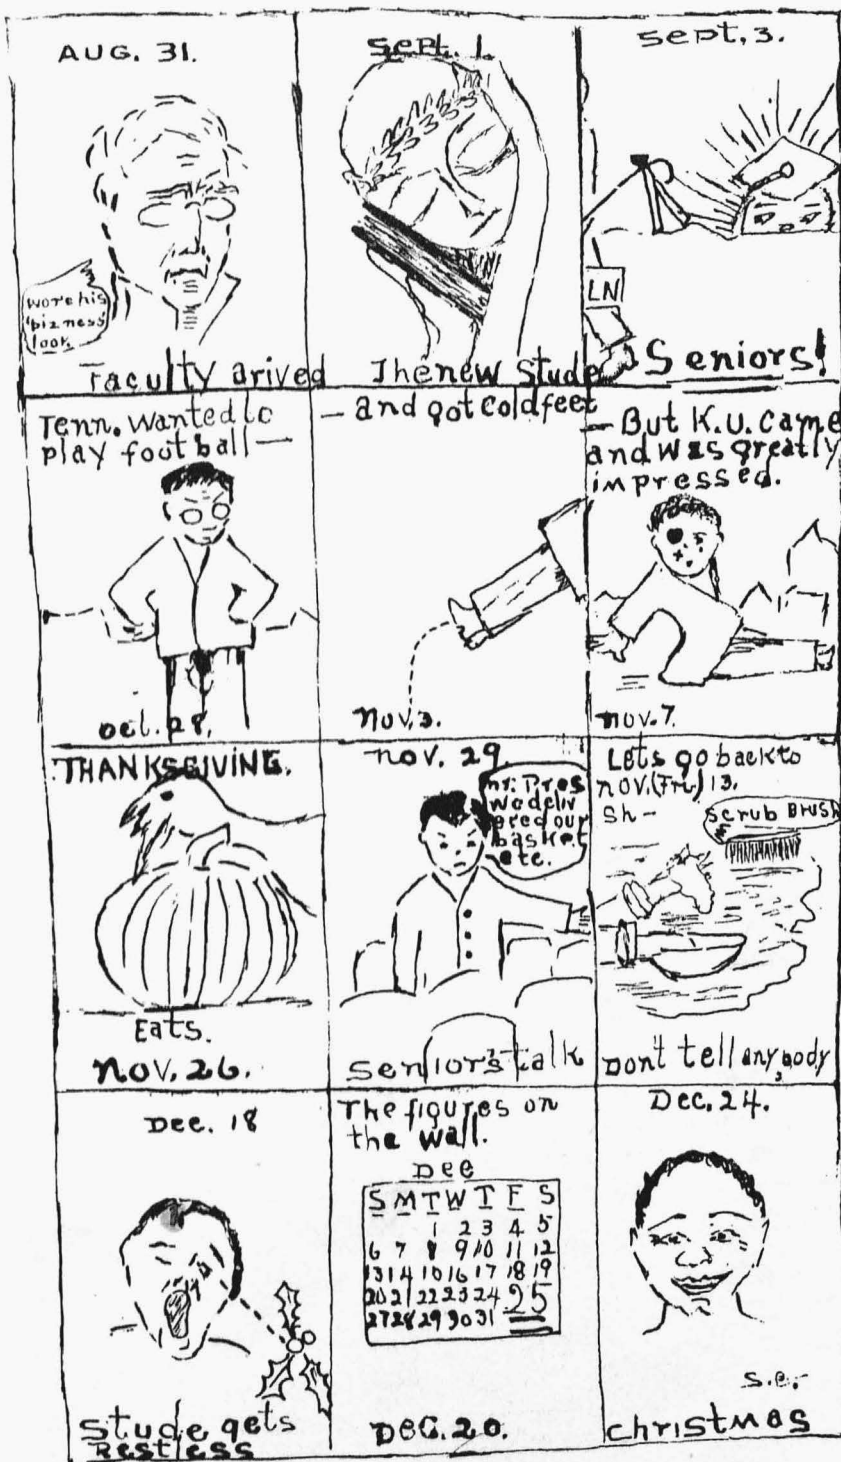 AUG. 31.
wore his
'bizness'
look
Faculty arived
Sept. 1.
The new Stude
Sept, 3.
LN
Seniors!
Tenn. Wanted to
play football —
Oct. 28,
— and got cold feet
Nov, 3.
— But K.U. Came
and was greatly
impressed.
nov. 7.
THANKSGIVING.
Eats.
Nov. 26.
nov. 29
Mr. Pres
we deliv
ered our
basket
etc.
Senior's talk
Lets go back to
nov. (Fri) 13.
Sh-
Scrub Brush
Don't tell any, body
Dec. 18
Stude gets
Restless
The figures on
the wall.
Dec
S M T W T F S
1 2 3 4 5
6 7 8 9 10 11 12
13 14 15 16 17 18 19
20 21 22 23 24 25
27 28 29 30 31
Dec. 20.
Dec, 24.
S.e.
christmas